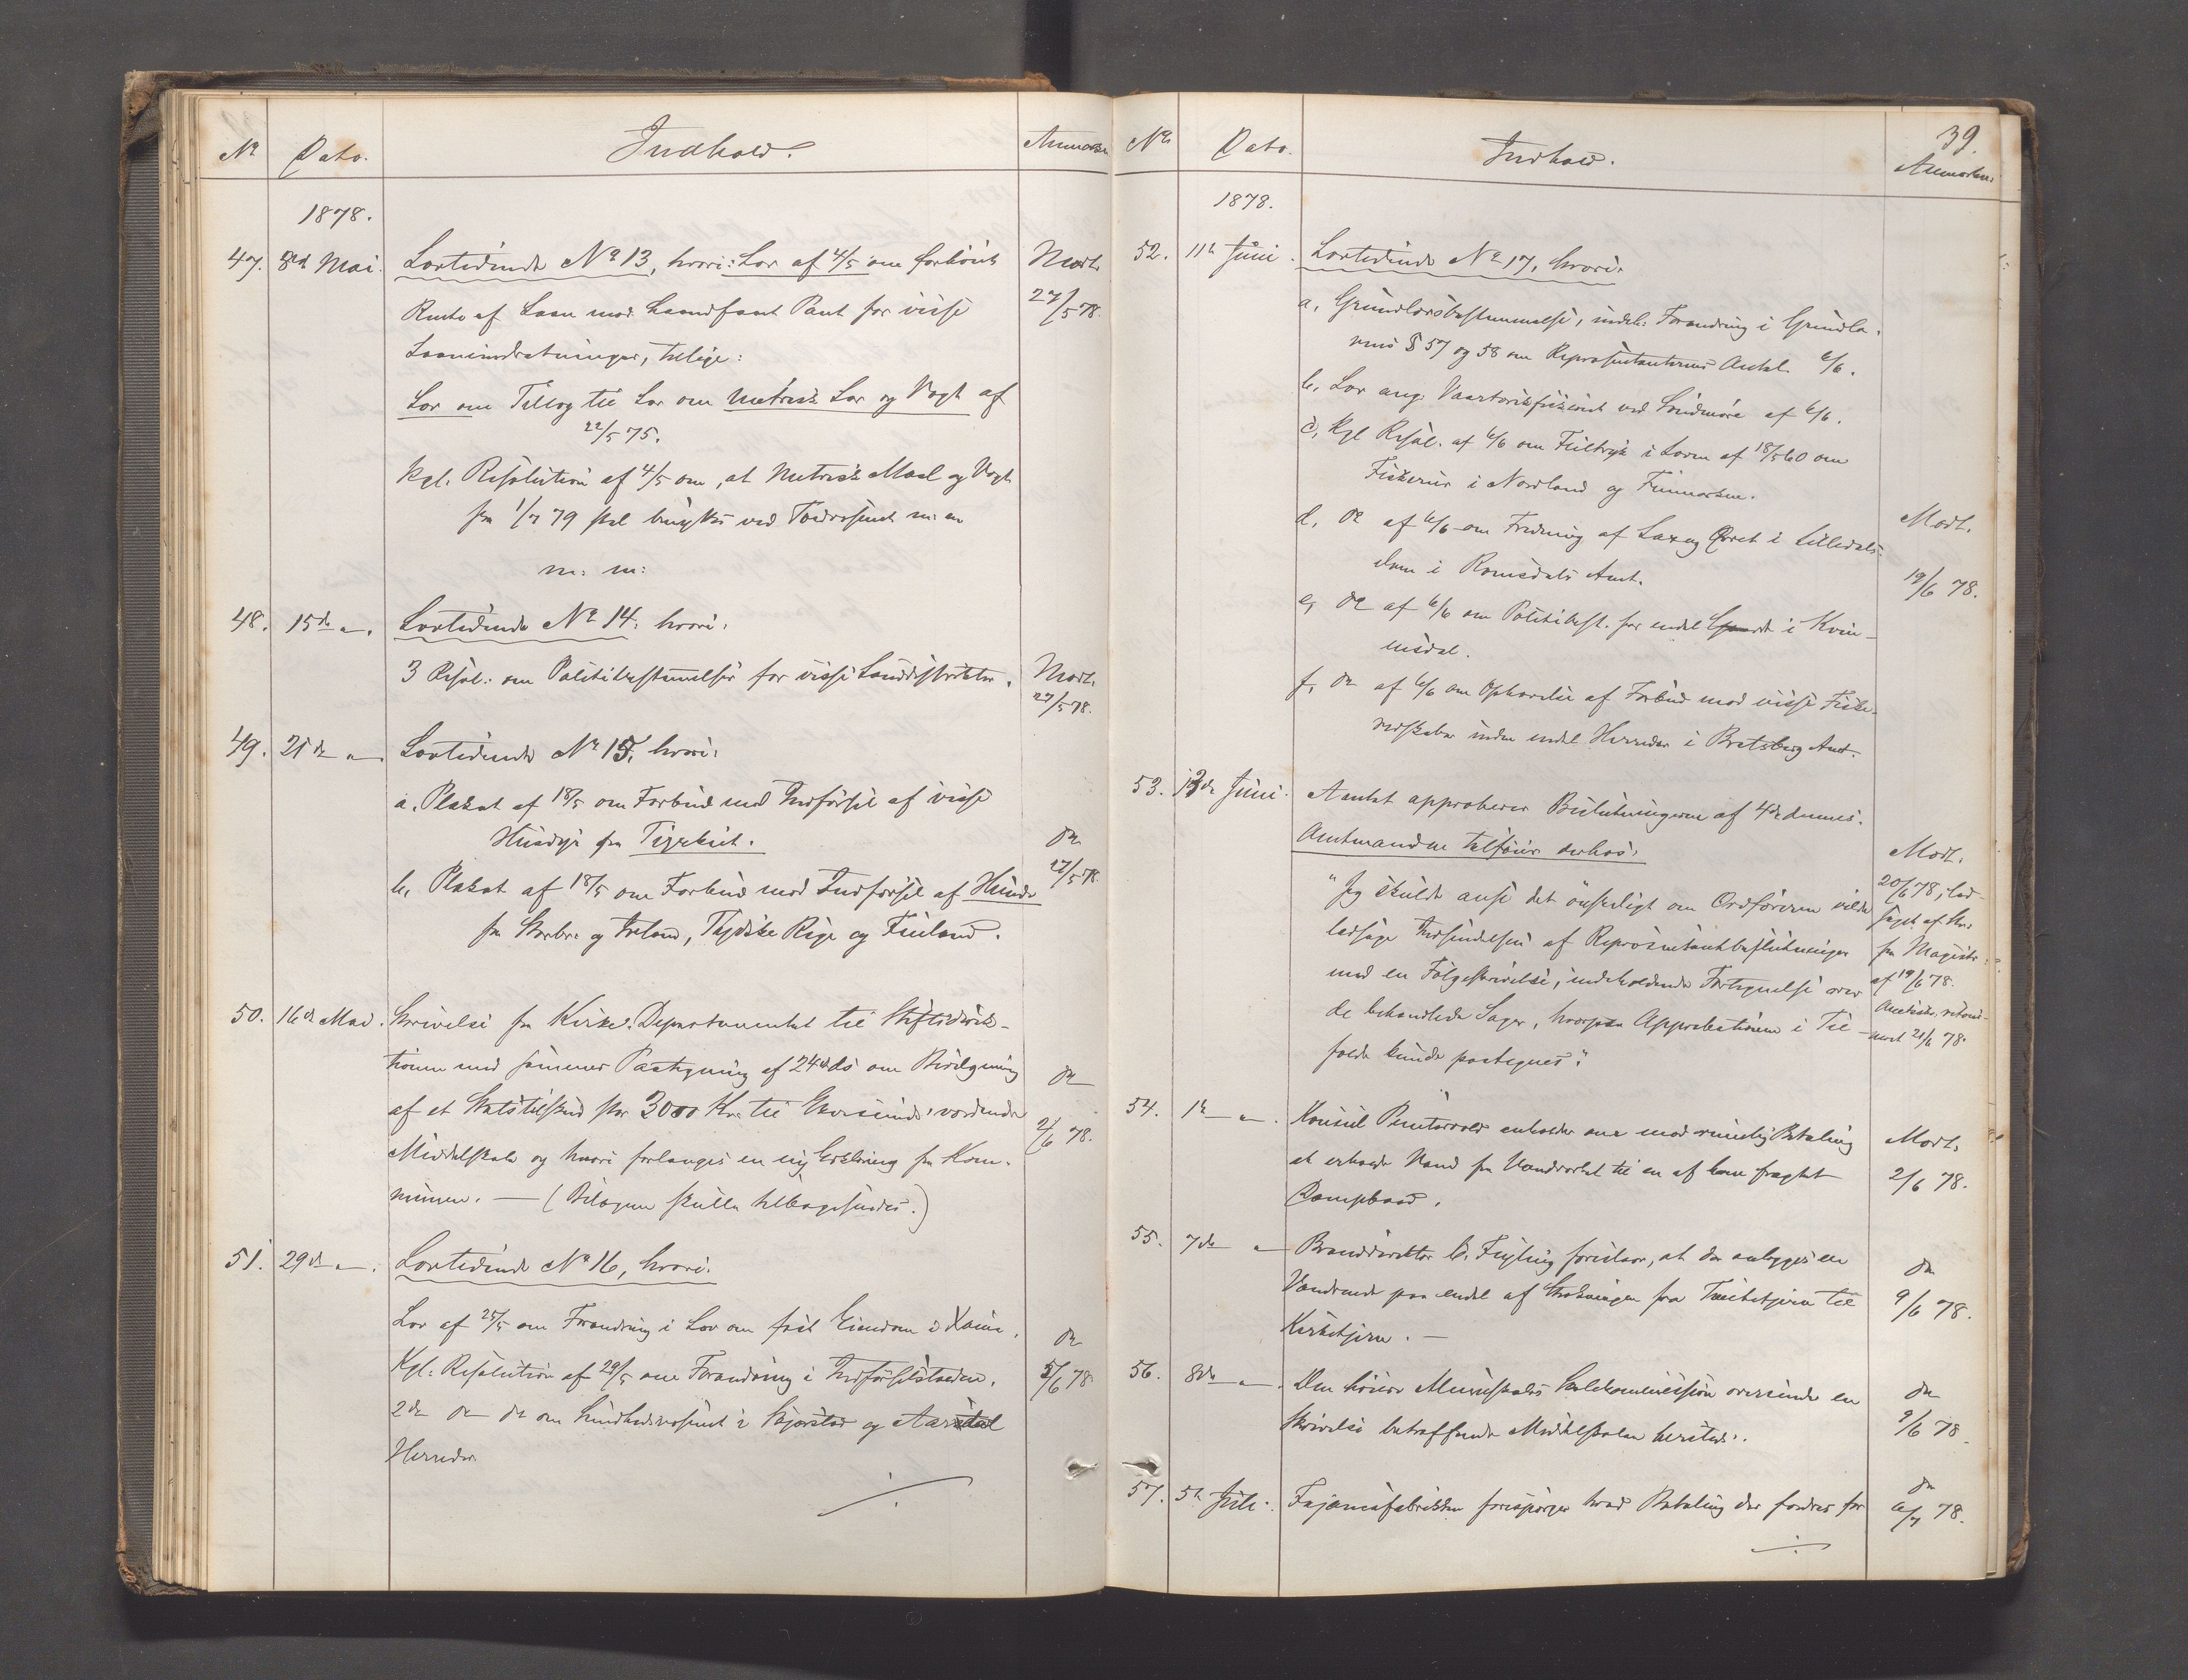 No Dato. Indhold. Anmærkn.
1878.
47. 8de Mai. Lovtidende No 13, hvori: Lov af 4/5 om forhøiet Modt.
Rente af Laan mod haandfaaet Pant for visse 27/5 78.
Laaneindretninger, tillige:
Lov om Tillæg til Lov om metrisk Lov og Vægt af
22/5 75.
Kgl. Resolution af 4/5 om, at metrisk Maal og Vægt
fra 1/7 79 skal benyttes ved Toldvæsenet m: m
m: m:
48. 15de ". Lovtidende No 14. hvori:
3 Resol: om Politibestemmelser for visse Landdistrikter. Modt.
27/5 78.
49. 21de ". Lovtidende No 15, hvori:
a. Plakat af 18/5 om Forbud mod Indførsel af visse
Husdyr fra Tyrkiet. do
27/5 78.
b. Plakat af 18/5 om Forbud mod Indførsel af Hunde
fra Storbr: og Irland, Tydske Rige og Finland.
50. 16de Mai. Skrivelse fra Kirke: Departementet til Stiftsdirek-
tionen med sammes Paategning af 24de ds om Bevilgning do
af et Statstilskud stor 3000 Kr. til Egersunds vordende 2/6 78.
Middelskole og hvori forlanges en ny Erklæring fra Kom-
munen. — (Bilagene skulle tilbagesendes.)
51. 29de ". Lovtidende No 16, hvori:
Lov af 25/5 om Forandring i Lov om fast Eiendom i
Kgl: Resolution af 29/5 om Forandring i Indførselstolden. do 5/6 78
2de do do om Sundhedsvæsenet i Gjerstad og
Herreder
./.
39.
No Dato. Indhold. Anmærkn.
1878.
52. 11te Juni. Lovtidende No 17, hvori:
a, Grundlovsbestemmelse, indeh: Forandring i Grundlo-
vens § 57 og 58 om Repræsentanternes Antal 6/6.
b, Lov ang: Vaartorskefiskeriet ved Søndmøre af 6/6.
c, Kgl Resol. af 6/6 om Feiltryk i Loven af 18/5 60 om
Fiskerier i Nordland og Finmarken.
d, do af 6/6 om Fredning af Lax og Ørret i Lilledals- Modt.
elven i Romsdals Amt. 19/6 78.
e, do af 6/6 om Politibest. for endel i Kvin-
esdal.
f, do af 6/6 om Ophævelse af Forbud mod visse Fiske-
redskaber inden endel Herreder i Bratsberg Amt.
53. 13de Juni. Amtet approberer Beslutningerne af 4de dennes.
Amtmanden tilføier derhos: Modt.
"Jeg skulde anse det ønskeligt om Ordføreren vilde 20/6 78, led-
ledsage Indsendelsen af Repræsentantbeslutninger saget af Skr.
med en Følgeskrivelse, indeholdende Fortegnelse over fra Magistr.
de behandlede Sager, hvorpaa Approbationen i Til- af 19/6 78.
fælde kunde paategnes". Amtsskr. retour-
neret 21/6 78.
54. 1te ". Konsul Puntervold anholder om mod rimelig Betaling Modt.
at erholde Vand fra Vandværket til en af ham fragtet 2/6 78.
Dampbaad.
55. 7de " Branddirektør C. Feyling foreslaar, at der anlægges en do
Vandrende paa endel af Strækningen fra til 9/6 78.
Kirketjern. —
56. 8de ". Den høiere Almueskoles Skolekommission oversender en do
Skrivelse betræffende Middelskolen hersteds. 9/6 78.
57. 5te Juli. Fajancefabrikken forespørger hvad Betaling der fordres for do 6/7 78.
./.